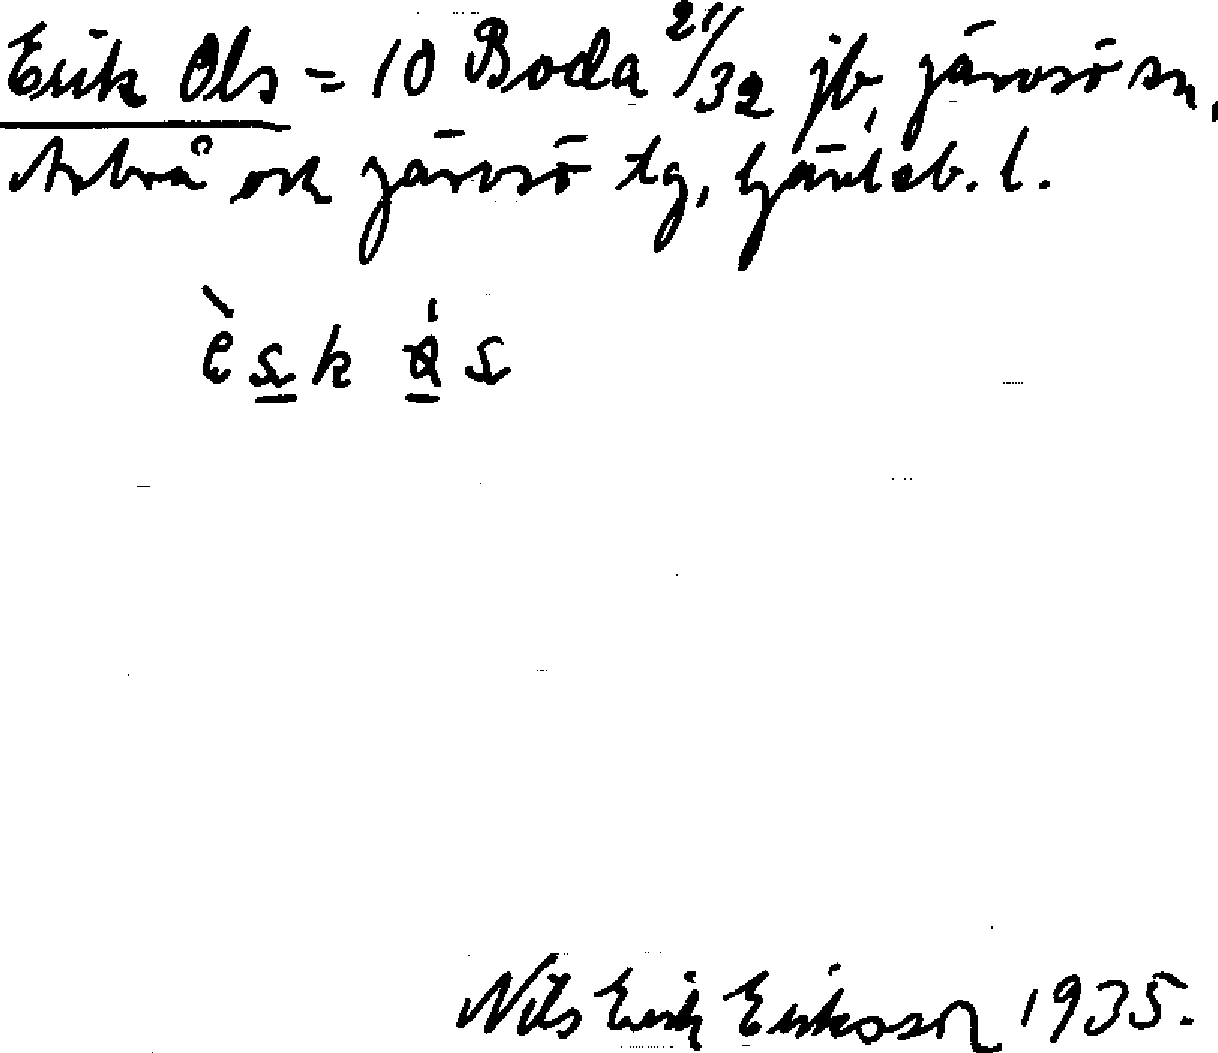 Erik Ols = 10 Boda 21/32 jb, Järvsö sn,
Arbrå ock Järvsö tg, Gävleb. l.
Nils Erik Eriksson 1935.